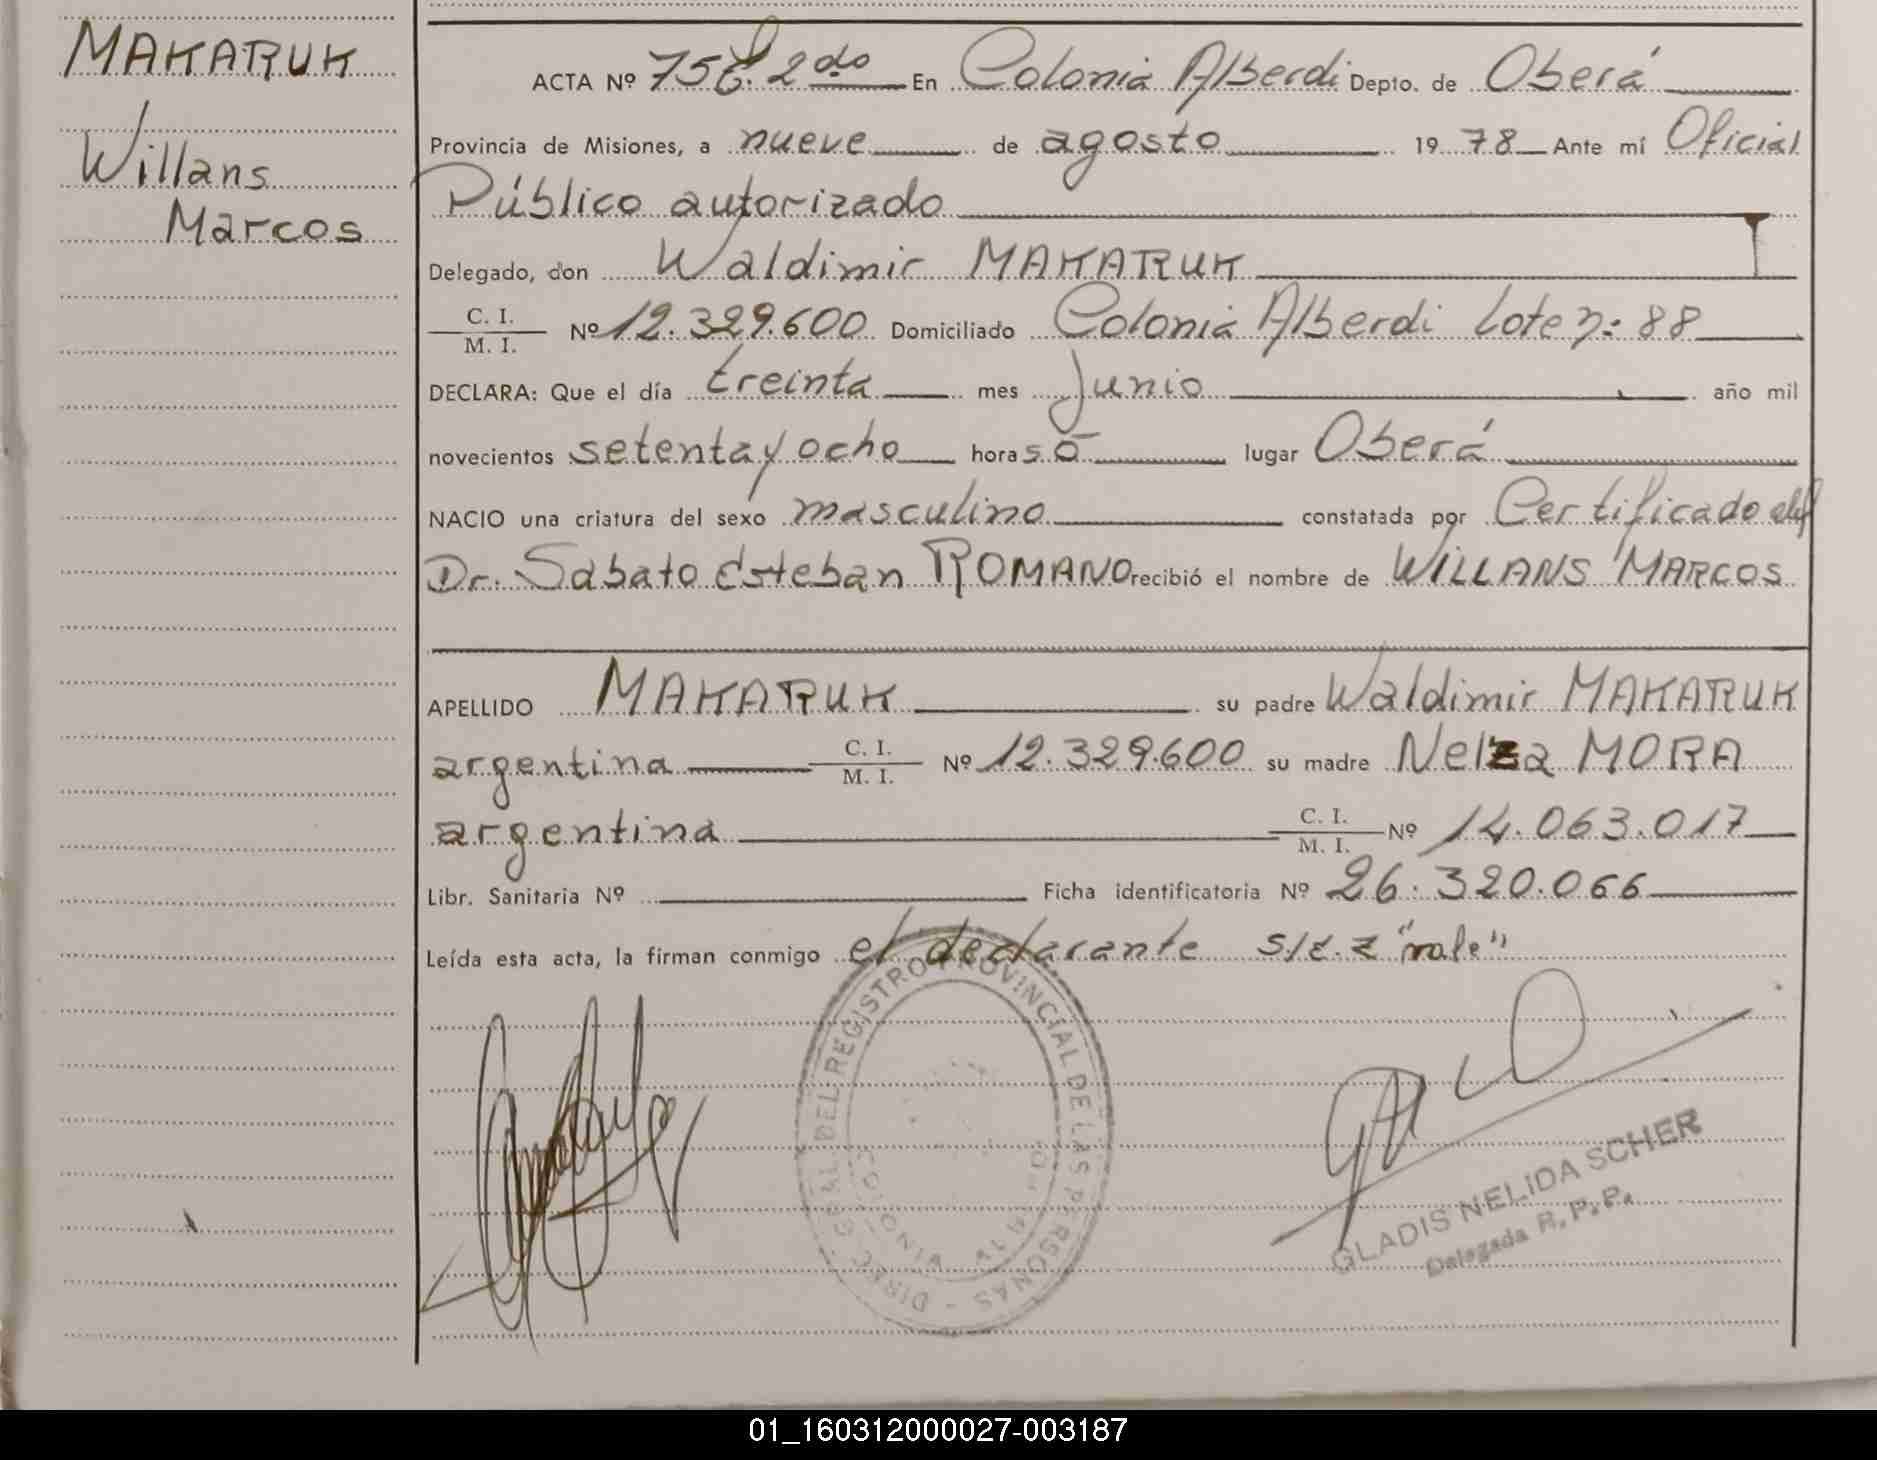 MAKARUK
Willans
Marcos
ACTA Nº 75 2do En Colonia Alberdi Depto. de Oberá
Provincia de Misiones, a nueve de agosto 1978 Ante mí Oficial
Público autorizado
Delegado, don Waldimir MAKARUK
C. I.
M. I. Nº 12.329.600 Domiciliado Colonia Alberdi Lote n: 88
DECLARA: Que el día treinta mes Junio año mil
novecientos setenta y ocho horas 0 lugar Oberá
NACIO una criatura del sexo masculino constatada por Certificado del
Dr. Sabato Esteban ROMANO recibió el nombre de WILLANS MARCOS
APELLIDO MAKARUK su padre Waldimir MAKARUK
argentina C. I. M. I. Nº 12.329.600 su madre Nelza MORA
argentina C. I. M. I. Nº 14.063.017
Libr. Sanitaria Nº Ficha identificatoria Nº 26.320.066
Leída esta acta, la firman conmigo el declarante s/r. z "vale"
DIREC. GRAL. DEL REGISTRO PROVINCIAL DE LAS PERSONAS -
COLONIA
GLADIS NELIDA SCHER
Delegada R. P. P.
01_160312000027-003187